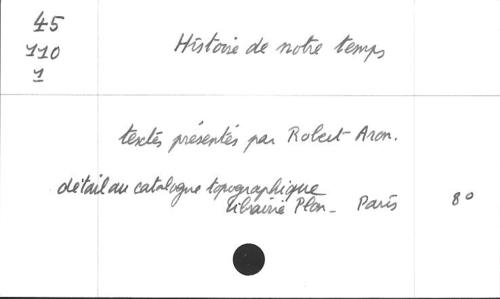 45
110
1
Histoire de notre temps
textes présentés par Robert Aron.
détail au catalogue topographique
Librairie Plon - Paris 8°